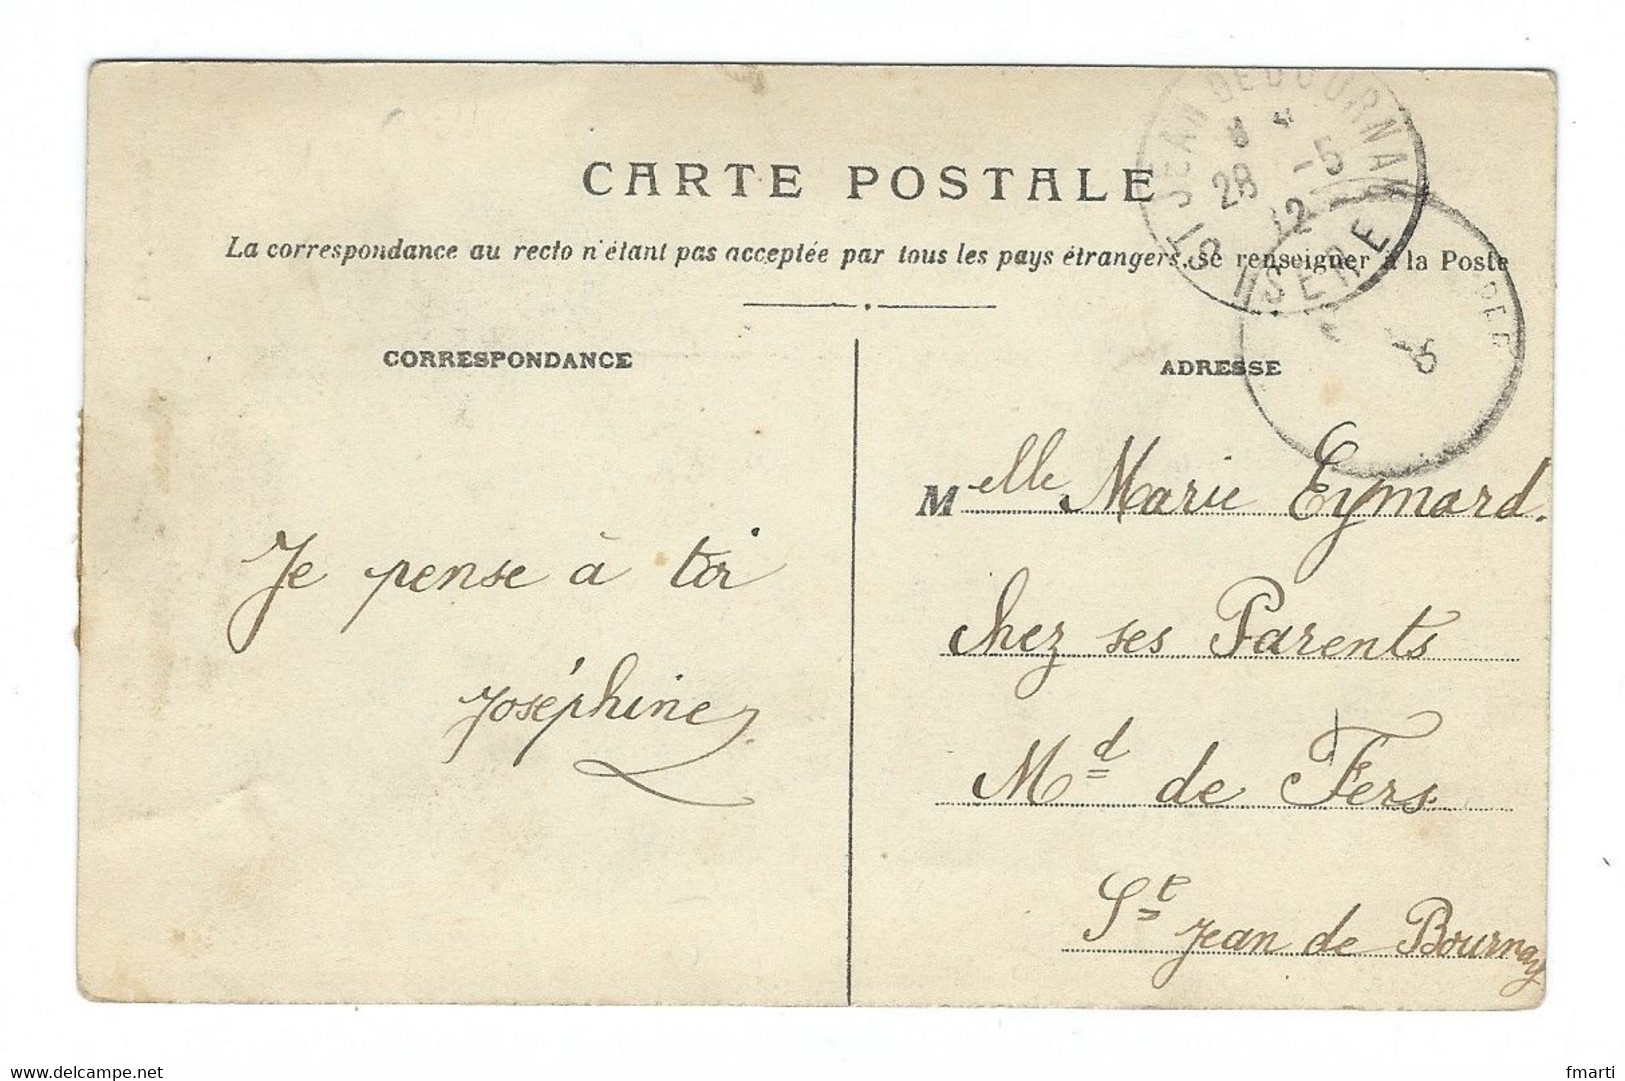 CARTE POSTALE
La correspondance au recto n'étant pas acceptée par tous les pays étrangers, se renseigner à la Poste
CORRESPONDANCE
Je pense à toi
Joséphine
ADRESSE
Melle Marie Eymard.
Chez ses Parents
Md de Fers
St Jean de Bournay
ST JEAN DE BOURNAY
28 -5
12
ISERE
-5
www.delcampe.net
fmarti